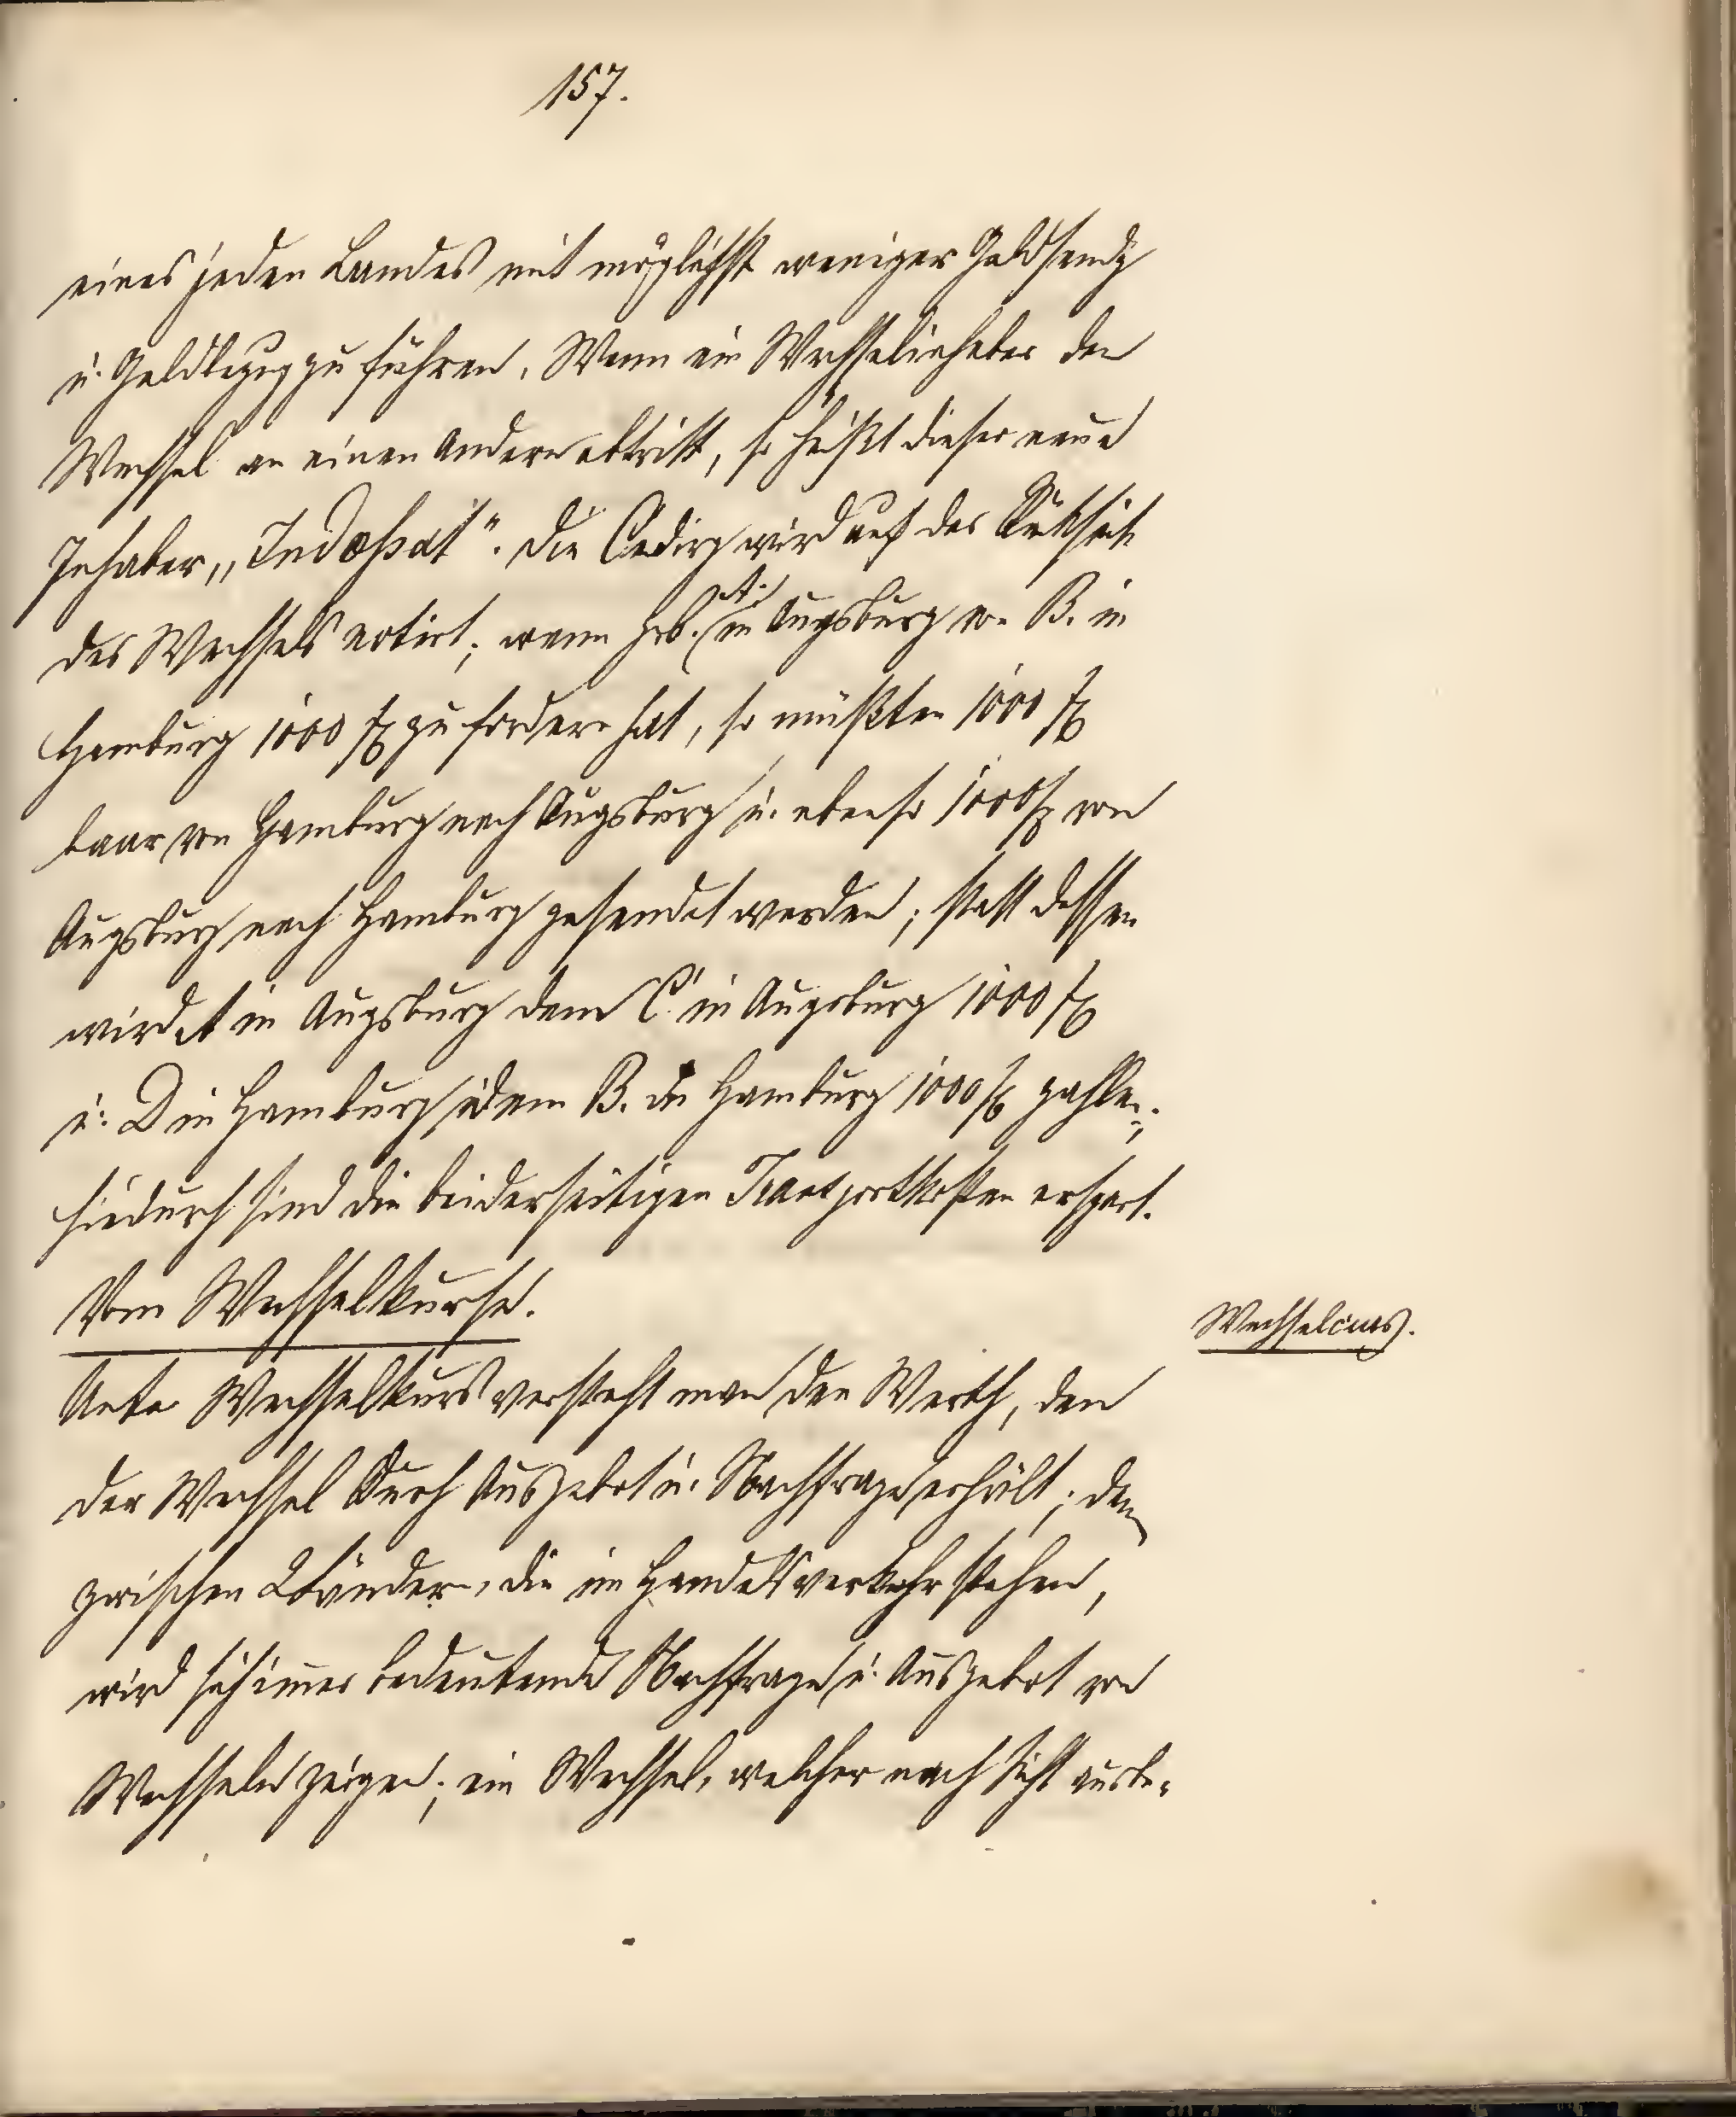 157.
eines jeden Landes mit möglichst weniger Geldsendg
u. Geldbezug zu führen. Wenn ein Wechselinhaber den
Wechsel an einen Andern abtritt, so heißt dieser neue
Inhaber „Indossat". Die Cedirg wird auf der Rückseite
des Wechsels notirt; wenn z.b. A. in Augsburg von B. in
Hamburg 1000 fl zu fordern hat, so müßten 1000 fl
baar von Hamburg nach Augsburg u. ebenso 1000 fl von
Augsburg nach Hamburg gesendet werden; statt dessen
wird A in Augsburg dem C. in Augsburg 1000 fl
u. D in Hamburg dem B. in Hamburg 1000 fl zahlen;
hiedurch sind die beiderseitigen Transportkosten erspart.
Vom Wechselkurse.
Wechselcurs.
Unter Wechselkurs versteht man den Werth, den
der Wechsel durch Ausgebot u. Nachfrage erhält; denn
zwischen Ländern, die im Handelsverkehr stehen,
wird sich immer bedeutende Nachfrage u. Ausgebot von
Wechseln zeigen; ein Wechsel, welcher nach Sicht